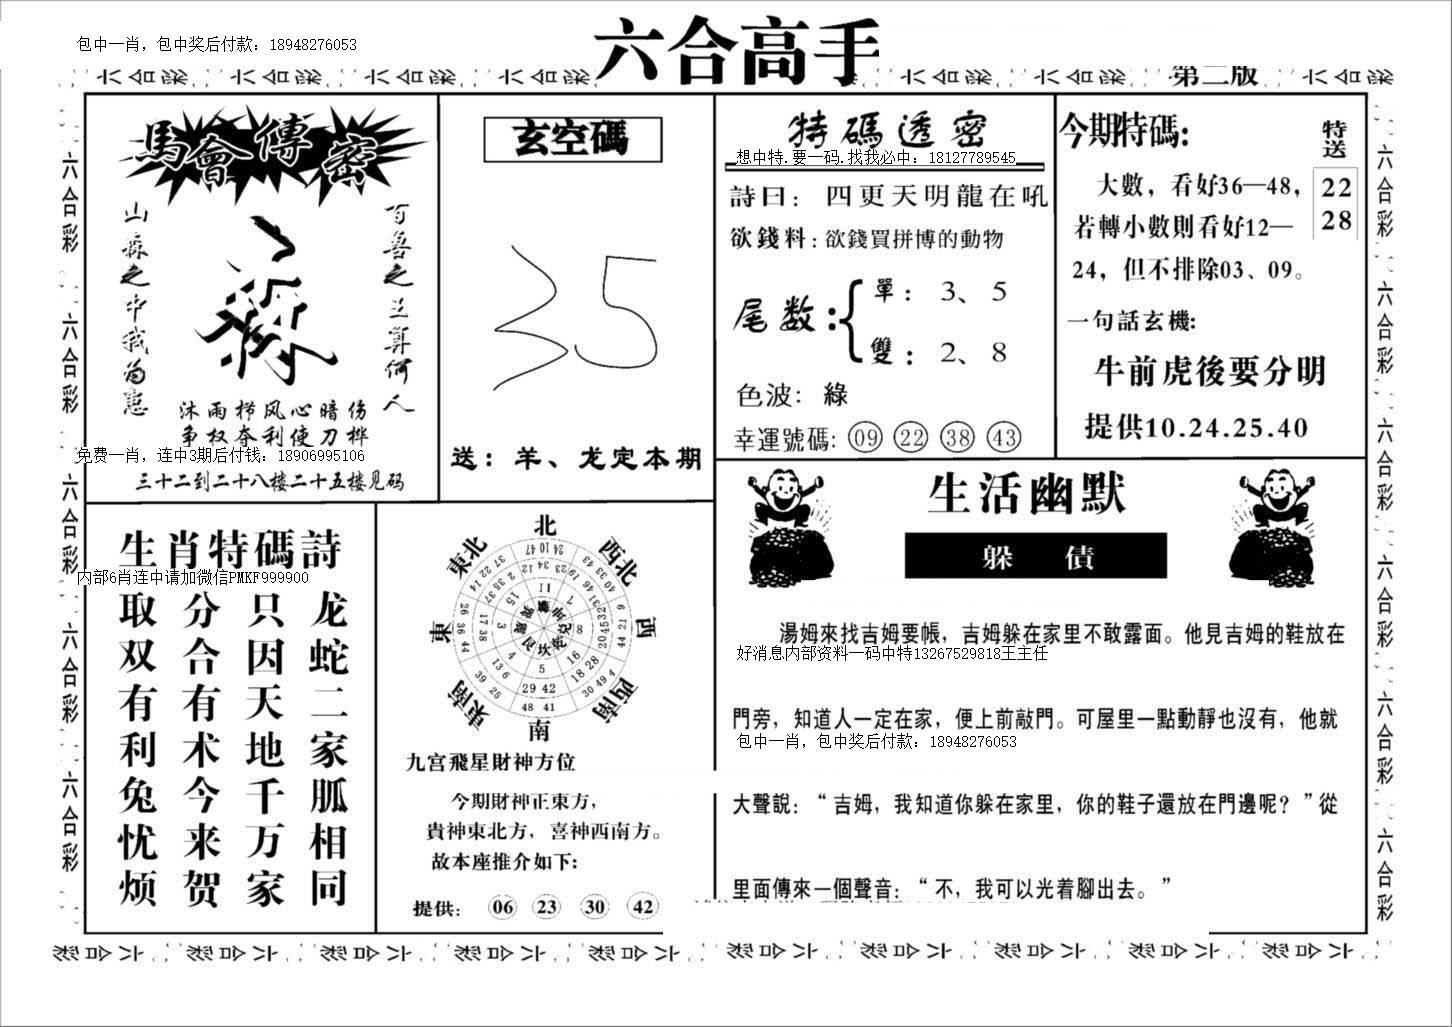 六合高手
包中一肖，包中奖后付款：18948276053
第二版
馬會傳密
百善之王算何人
山森之中我为患
沐雨栉风心暗伤
争权夺利使刀桦
免费一肖，连中3期后付钱：18906995106
三十二到二十八楼二十五楼见码
玄空碼
35
送：羊、龙定本期
特碼透密
想中特.要一码.找我必中：18127789545
詩曰：四更天明龍在吼
欲錢料：欲錢買拼博的動物
尾数：
單：3、5
雙：2、8
色波：綠
幸運號碼：09 22 38 43
今期特碼：
特送
22
28
大數，看好36—48，
若轉小數則看好12—
24，但不排除03、09。
一句話玄機：
牛前虎後要分明
提供10.24.25.40
生肖特碼詩
内部6肖连中请加微信PMKF999900
龙蛇二家胍相同
只因天地千万家
分合有术今来贺
取双有利兔忧烦
北
西北
西
西南
南
東南
東
東北
九宫飛星財神方位
今期財神正東方，
貴神東北方，喜神西南方。
故本座推介如下：
提供：06 23 30 42
生活幽默
躲債
湯姆來找吉姆要帳，吉姆躲在家里不敢露面。他見吉姆的鞋放在
好消息内部资料一码中特13267529818王主任
門旁，知道人一定在家，便上前敲門。可屋里一點動靜也沒有，他就
包中一肖，包中奖后付款：18948276053
大聲說：“吉姆，我知道你躲在家里，你的鞋子還放在門邊呢？”從
里面傳來一個聲音：“不，我可以光着腳出去。”
六合彩 六合彩 六合彩 六合彩 六合彩
六合彩 六合彩 六合彩 六合彩 六合彩 六合彩